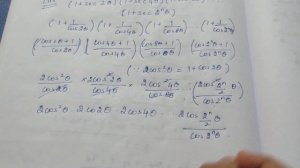 (1+sec2θ)(1+sec4θ)(1+
(1+sec2ⁿθ)
(1+1/cos2θ)(1+1/cos4θ)(1+1/cos8θ) (1+1/cos2ⁿθ)
(cos2θ+1/cos2θ)(cos4θ+1/cos4θ)(cos8θ+1/cos8θ)(cos2ⁿθ+1/cos2ⁿθ)
(∵ 2cos²θ = 1+cos2θ)
2cos²θ/cos2θ × 2cos²2θ/cos4θ × 2cos²4θ/cos8θ
2cos²θ · 2cos2θ · 2cos4θ 2cos 2ⁿ/2 θ/cos2ⁿθ